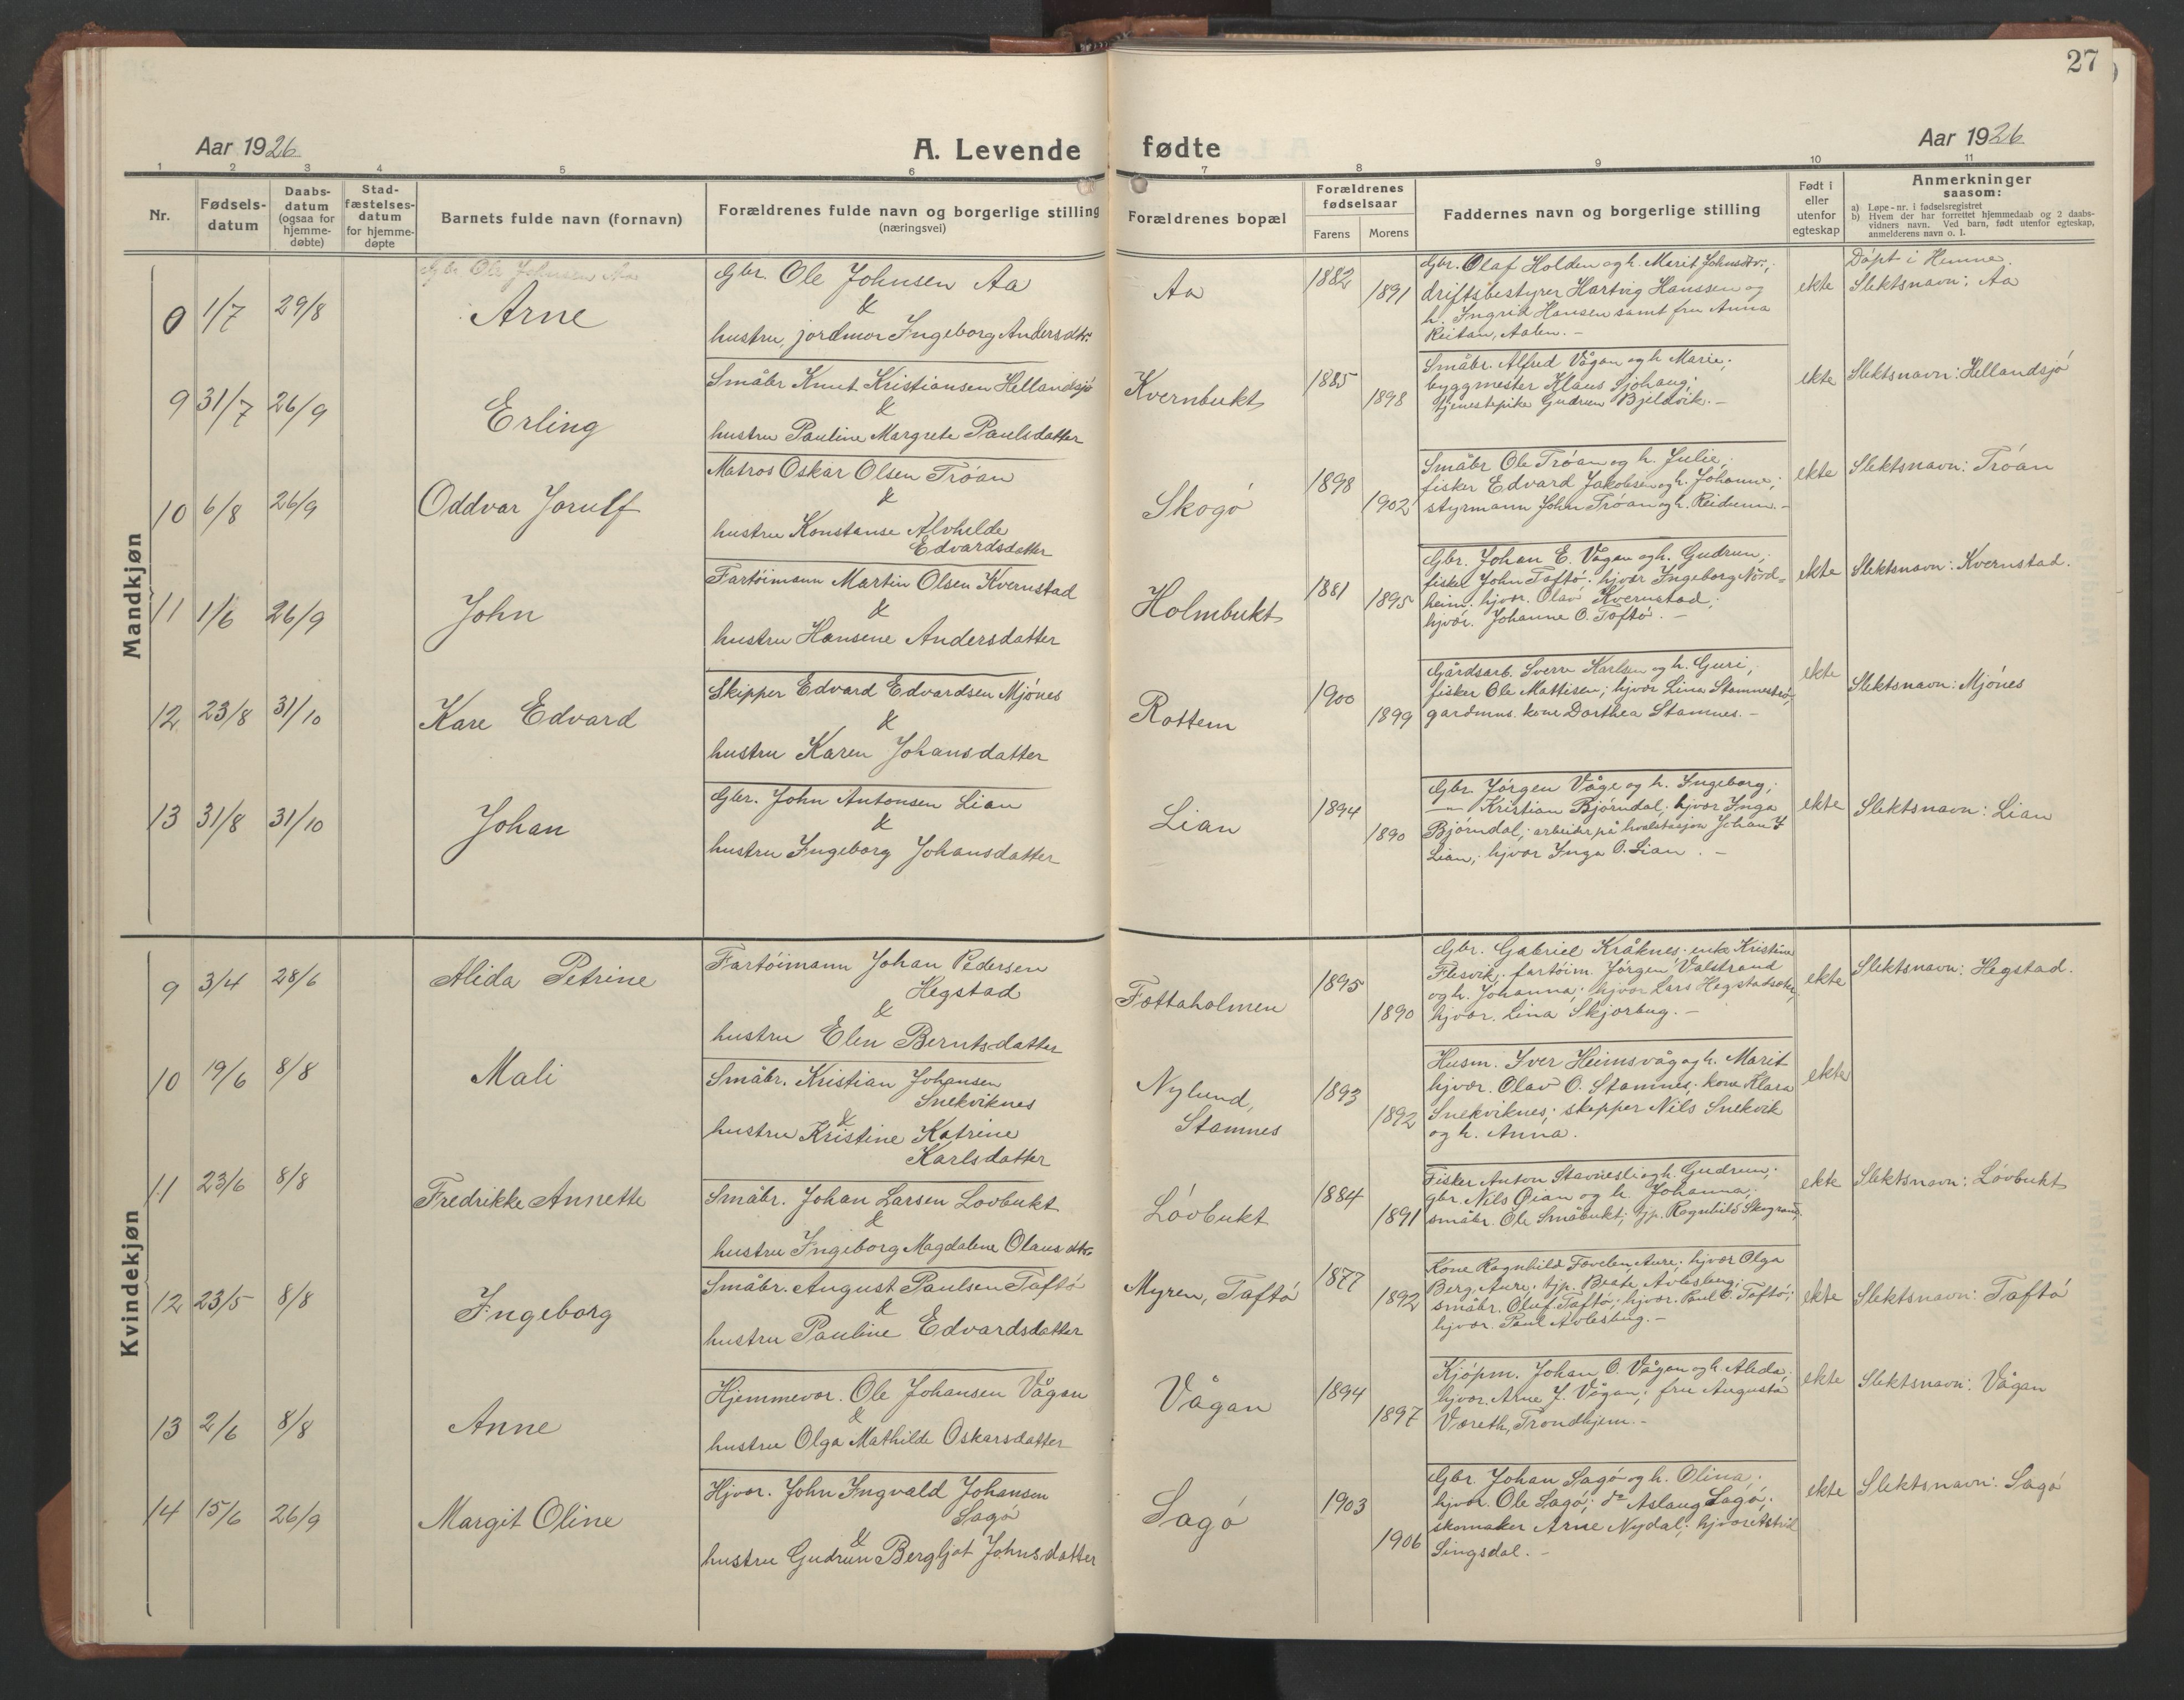 27
Aar 1926
A. Levende fødte
Aar 1926
1 2 3 4 5 6 7 8 9 10 11
Nr.
Fødsels-
datum
Daabs-
datum
(ogsaa for
hjemme-
døbte)
Stad-
fæstelses-
datum
for hjemme-
døpte
Barnets fulde navn (fornavn)
Forældrenes fulde navn og borgerlige stilling
(næringsvei)
Forældrenes bopæl
Forældrenes
fødselsaar
Farens Morens
Faddernes navn og borgerlige stilling
Født i
eller
utenfor
egteskap
Anmerkninger
saasom:
a) Løpe-nr. i fødselsregistret
b) Hvem der har forrettet hjemmedaab og 2 daabs-
vidners navn. Ved barn, født utenfor egteskap,
anmelderens navn o. l.
Mandkjøn
Gbr. Ole Johnsen Aa
0 1/7 29/8
Arne
Gbr. Ole Johnsen Aa
&
hustru, jordmor Ingeborg Andersdtr.
Aa
1882
1891
Gbr. Olaf Holden og h. Marit Johnsdtr.;
driftsbestyrer Hartvig Hanssen og
h. Ingrid Hansen samt fru Anna
Reitan, Aalen. –
ekte
Döpt i Hemne.
Slektsnavn: Aa
9 31/7 26/9
Erling
Småbr Knut Kristiansen Hellandsjö
&
hustru Pauline Margrete Paulsdatter
Kvernbukt
1885
1898
Småbr. Alfred Vågan og h. Marie;
byggmester Klaus Sjöhaug;
tjenestepike Gudrun Bjeldvik. –
ekte
Slektsnavn: Hellandsjö
10 6/8 26/9
Oddvar Jorulf
Matros Oskar Olsen Tröan
&
hustru Konstanse Alvhilde
Edvardsdatter
Skogö
1898
1902
Småbr Ole Tröan og h. Julie;
fisker Edvard Jakobsen og h. Johanne;
styrmann John Tröan og h. Reidunn. –
ekte
Slektsnavn: Tröan
11 1/6 26/9
John
Fartöimann Martin Olsen Kvernstad
&
hustru Hansine Andersdatter
Holmbukt
1881
1895
Gbr. Johan E. Vågan og h. Gudrun;
fisker John Taftö; hjvær Ingeborg Nord=
heim; hjvær. Olav Kvernstad;
hjvær. Johanne O. Taftö. –
ekte
Slektsnavn: Kvernstad.
12 23/8 31/10
Kare Edvard
Skipper Edvard Edvardsen Mjönes
&
hustru Karen Johansdatter
Rottem
1900
1899
Gårdsarb. Sverre Karlsen og h. Guri;
fisker Ole Mattisen; hjvær Lina Stamneströ;
gardmns. kone Dorthea Stamnes. –
ekte
Slektsnavn: Mjönes
13 31/8 31/10
Johan
Gbr. John Antonsen Lian
&
hustru Ingeborg Johansdatter
Lian
1894
1890
Gbr. Jörgen Våge og h. Ingeborg;
— Kristian Björndal; hjvær Inga
Björndal; arbeider på hvalstasjon Johan J
Lian; hjvær Inga O. Lian. –
ekte
Slektsnavn: Lian
Kvindekjøn
9 3/4 28/6
Alida Petrine
Fartöimann Johan Pedersen
Hegstad
&
hustru Elen Berntsdatter
Fættaholmen
1895
1890
Gbr. Gabriel Kråknes; enke Kristine
Flesvik; fartöim. Jörgen Valstrand
og h. Johanna; hjvær Lars Hegstadseter;
hjvær. Lina Skjærbug. –
ekte
Slektsnavn: Hegstad.
10 19/6 8/8
Mali
Småbr. Kristian Johansen
Snekviknes
&
hustru Kristine Katrine
Karlsdatter
Nylund,
Stamnes
1893
1892
Husm. Iver Heimsvåg og h. Marit
hjvær. Olav O. Stamnes; kone Klara
Snekviknes; skipper Nils Snekvik
og h. Anna.
ekte
11 23/6 8/8
Fredrikke Annette
Småbr. Johan Larsen Lovbukt
&
hustru Ingeborg Magdalene Olausdtr.
Lövbukt
1884
1891
Fisker Anton Stavnesli og h. Gudrun;
gbr. Nils Öian og h. Johanna;
småbr. Ole Småbukt; tjp. Ragnhild Skogrand;
ekte
Slektsnavn: Lövbukt
12 23/5 8/8
Ingeborg
Småbr. August Paulsen Taftö
&
hustru Pauline Edvardsdatter
Myren, Taftö
1877
1892
Kone Ragnhild Fævelen Aure; hjvær Olga
Berg, Aure; tjp. Beate Avlesbug;
småbr. Oluf Taftö; hjvær. Paul E. Taftö;
hjvær. Paul Avlesbug. –
ekte
Slektsnavn: Taftö
13 2/6 8/8
Anne
Hjemmevær. Ole Johansen Vågan
&
hustru Olga Mathilde Oskarsdatter
Vågan
1894
1897
Kjöpm. Johan O. Vågan og h. Alida;
hjvær. Arne J. Vågan; fru Augusta
Væreth, Trondhjem. –
ekte
Slektsnavn: Vågan
14 15/6 26/9
Margit Oline
Hjvær. John Ingvald Johansen
Sagö
&
hustru Gudrun Bergljot Johnsdatter
Sagö
1903
1906
Gbr. Johan Sagö og h. Olina;
hjvær. Ole Sagö; do Aslaug Sagö;
skomaker Arne Nydal; hjvær Astrid
Singsdal. –
ekte
Slektsnavn: Sagö